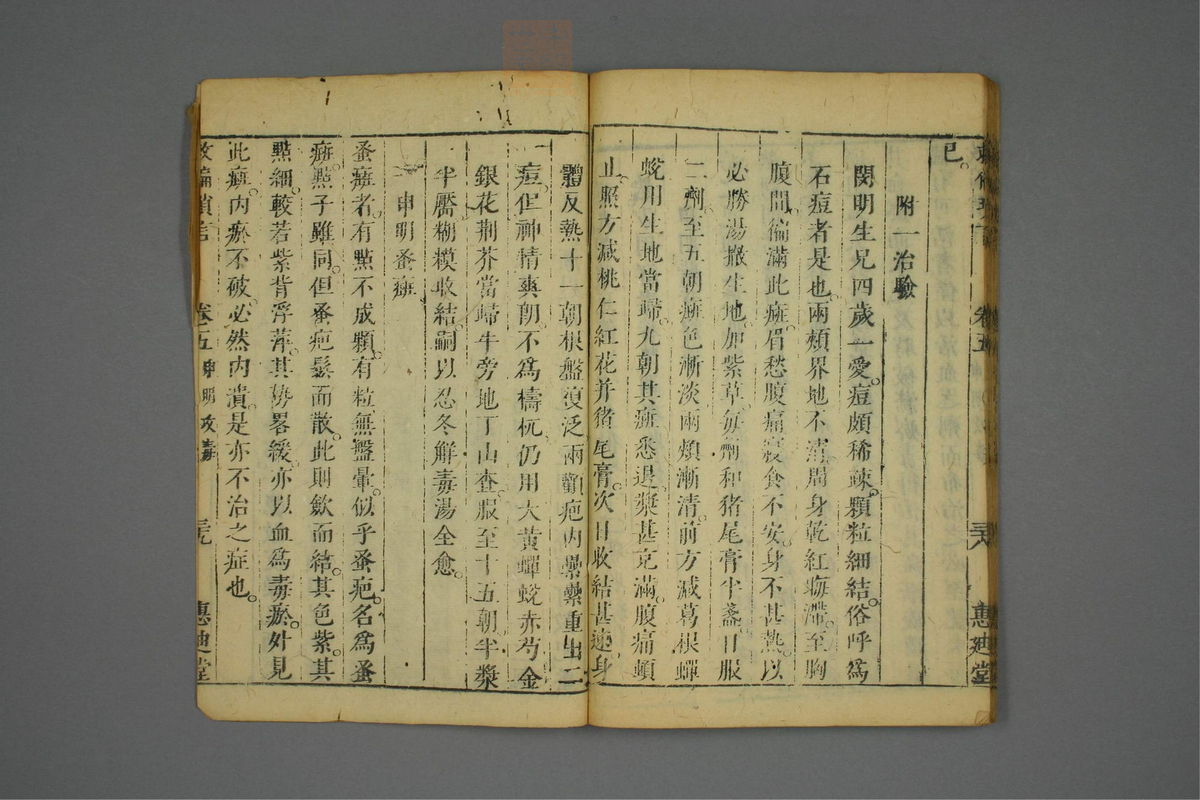 已。
附一治驗
閔明生兄四歲一愛。痘頗稀疎。顆粒細結。俗呼為
石痘者是也。兩頰界地不清。周身乾紅晦滯。至胸
腹間徧滿此癍。眉愁腹痛。寢食不安。身不甚熱。以
必勝湯撤生地。加紫草。每劑和猪尾膏半盞。日服
二劑。至五朝癍色漸淡。兩頰漸清。前方減葛根蟬
蛻用生地當歸。九朝其癍悉退。漿甚充滿。腹痛頓
止。照方減桃仁紅花并猪尾膏。次日收結甚速。身
卷五
三八
惠迪堂
體反熱。十一朝根盤復泛。兩顴疤內纍纍重出二
痘。但神情爽朗不為檮杌。仍用大黃蟬蛻赤芍金
銀花荆芥當歸牛旁地丁山查。服至十五朝。半漿
半靨。糊模收結。嗣以忍冬解毒湯全愈。
申明蚤癍
蚤癍者。有點不成顆。有粒無盤暈。似乎蚤疤。名為蚤
癍。點子雖同。但蚤疤鬆而散。此則歛而結。其色紫。其
點細。較若紫背浮萍。其勢畧緩。亦以血為毒瘀。外見
此癍。內瘀不破。必然內潰。是亦不治之症也。
救偏瑣言
卷五
申明蚤毒
三九
惠迪堂